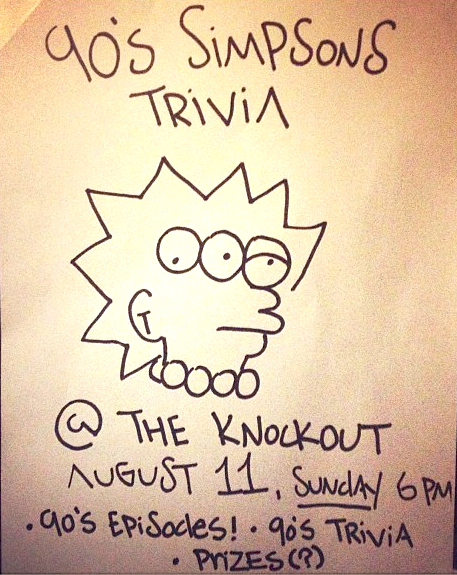 90's SiMPSONS
TRiViA
@ THE KNOCKOUT
AUGUST 11, SUNdAY 6 PM
• 90's EPiSodes! • 90's TRiViA
• PRiZES(?)